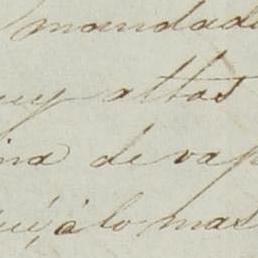 mandad
uy altas
ina de vap
uí, á lo mas